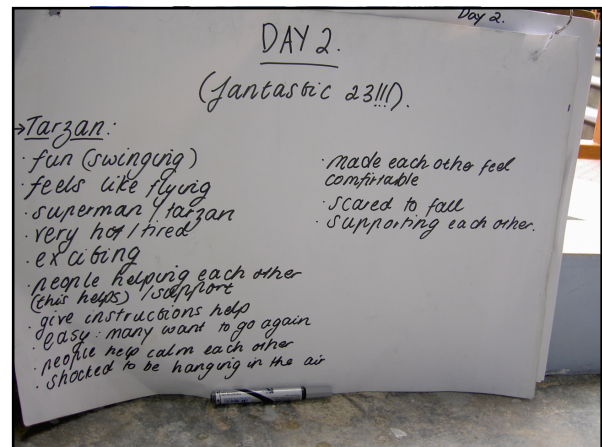 Day 2.
DAY 2.
(fantastic 23!!!).
→Tarzan:
· fun (swinging)
· feels like flying
· superman / tarzan
· very hot / tired
· exciting
· people helping each other
(this helps) / support
· give instructions help
· easy : many want to go again
· people help calm each other
· shocked to be hanging in the air
· made each other feel
comfirtable
· scared to fall
· supporting each other.